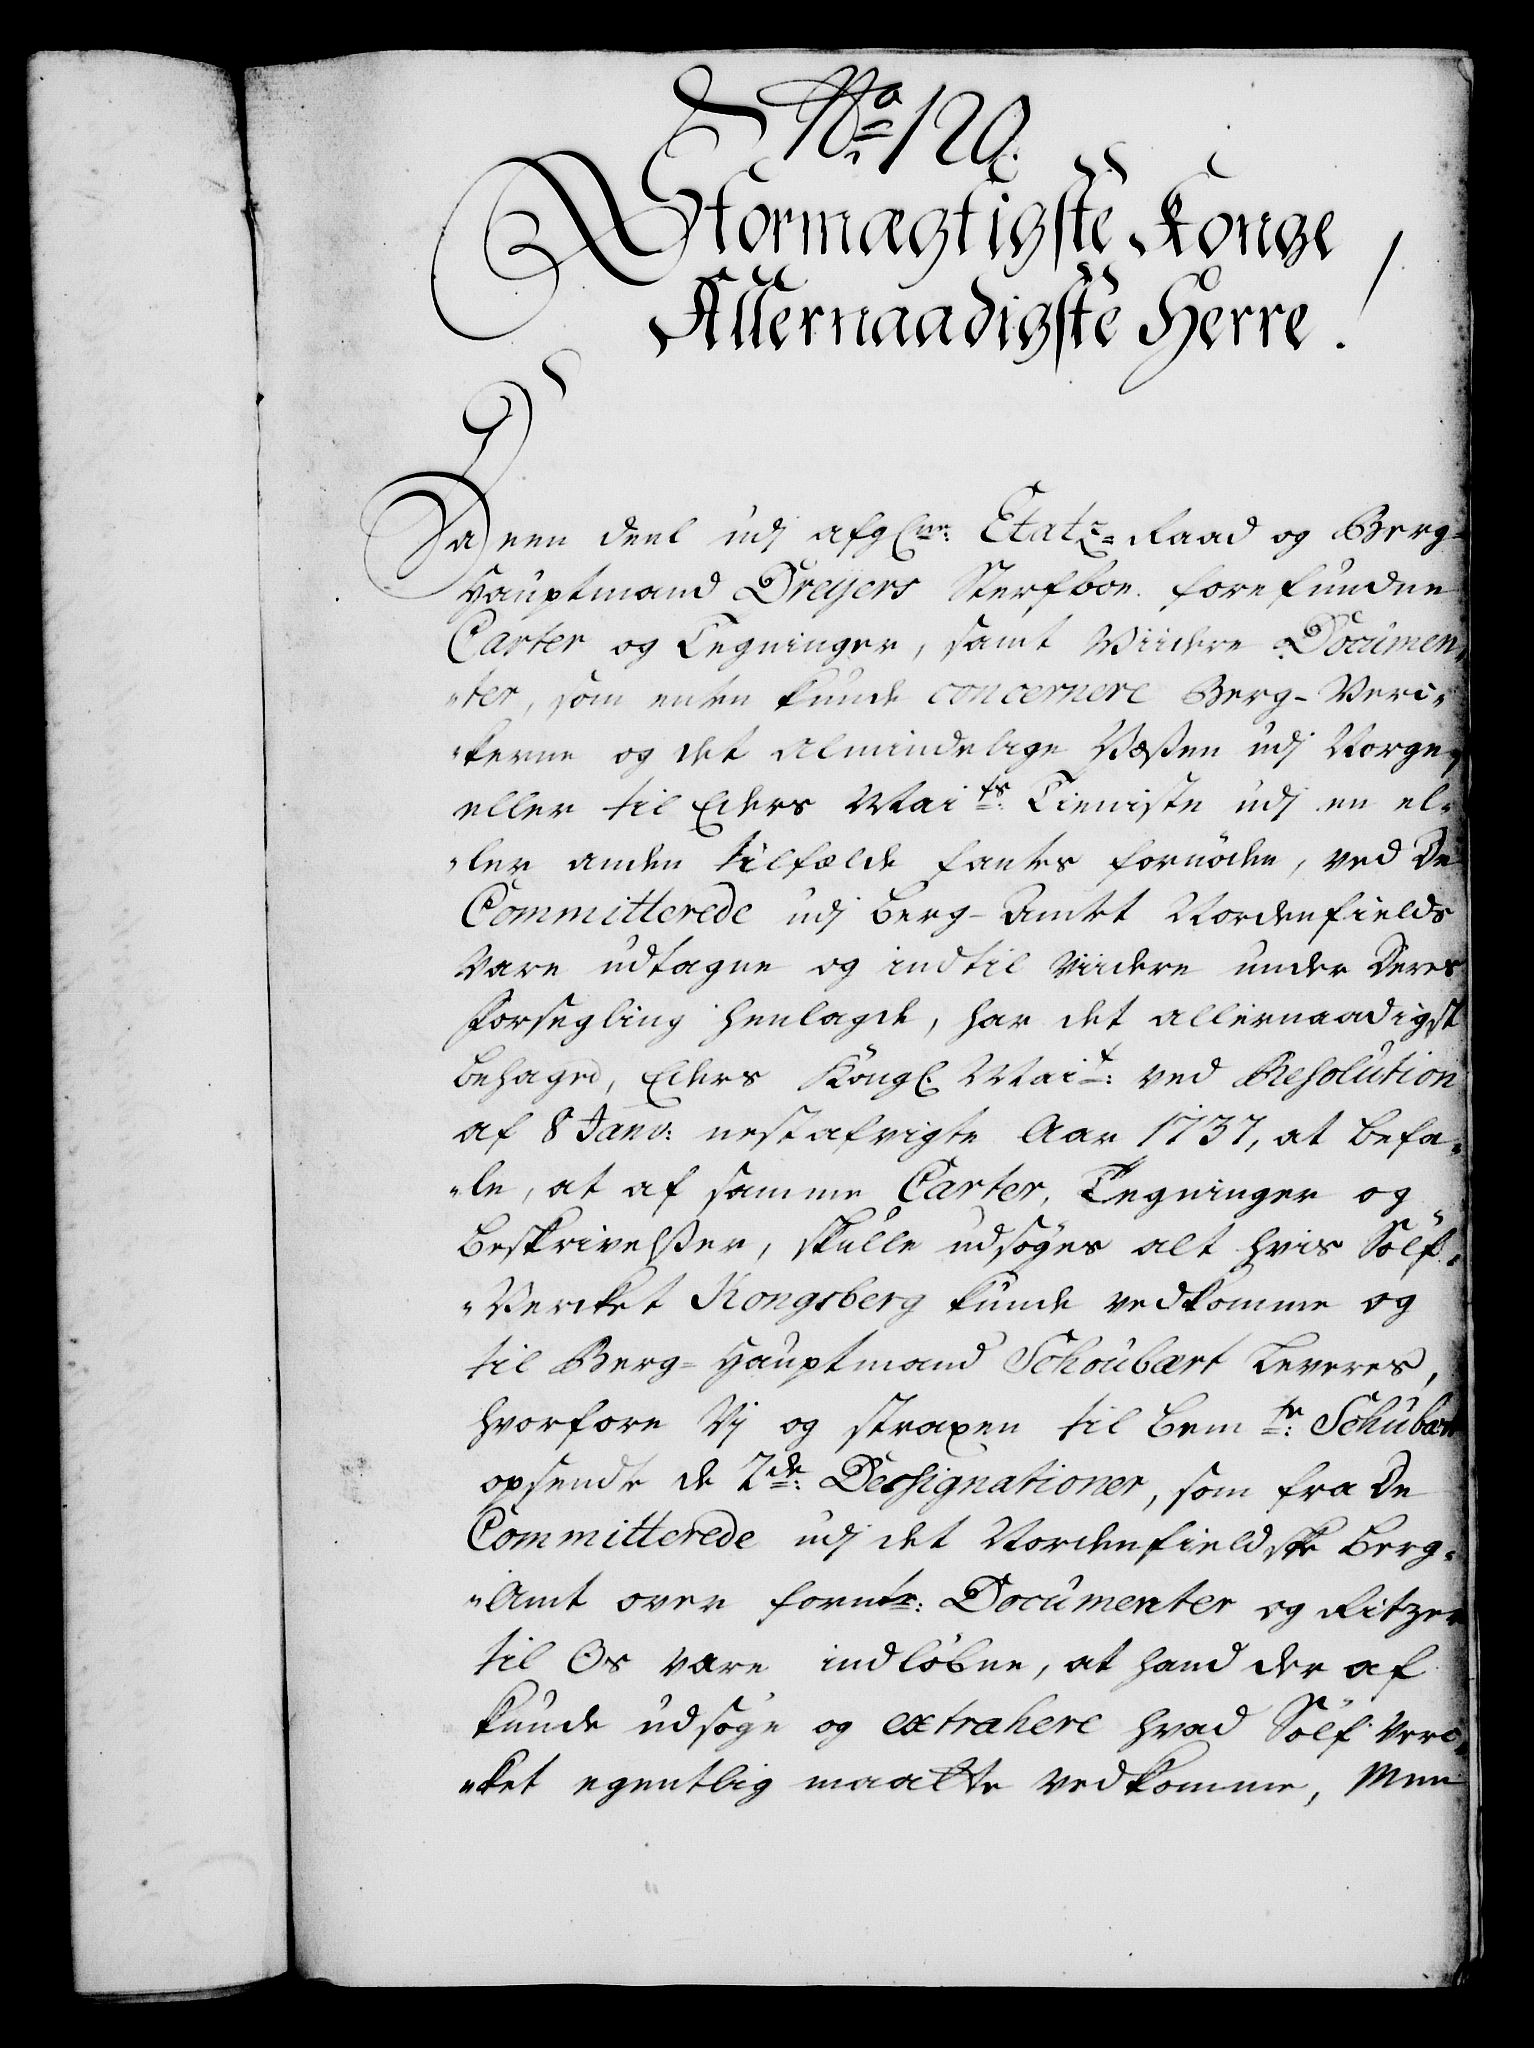 No 120.
Stormægtigste Konge
Allernaadigste Herre!
Da een deel udj afgl.ne: Etatz-Raad og Berg-
Hauptmand Dreyers Sterfboe forefundne
Carter og Tegninger, samt Viidere Documen-
"ter, som enten kunde concernere Berg-Verc-
"kerne og det almindelige Væsen udj Norge,
eller til Eders Maits: Tieniste udj en el-
"ler anden tilfælde fantes fornöden, ved De
Committerede udj Berg-Amtet Nordenfields
Vare udtagne og indtil Viidere under Deres
Forsegling henlagde, har det allernaadigst
behaged, Eders Kongl. Mait: ved Resolution
af 8 Janv: nestafvigte Aar 1737, at befa-
"le, at af samme Carter, Tegninger og
Beskrivelsser, skulle udsøges alt hvis Sölf-
"Vercket Kongsberg kunde vedkomme og
til Berg-Hauptmand Schoubært Leveres,
hvorfore Vj og straxen til bemte: Schubært
opsendte de 2de: Dessignationer, som fra De
Committerede udj det Nordenfieldske Berg-
"Amt over fornte: Documenter og Ritzer
til Os vare indlöbne, at hand der af
kunde udsøge og extrahere hvad Sölf Verc-
"ket egentlig maatte vedkomme, Men